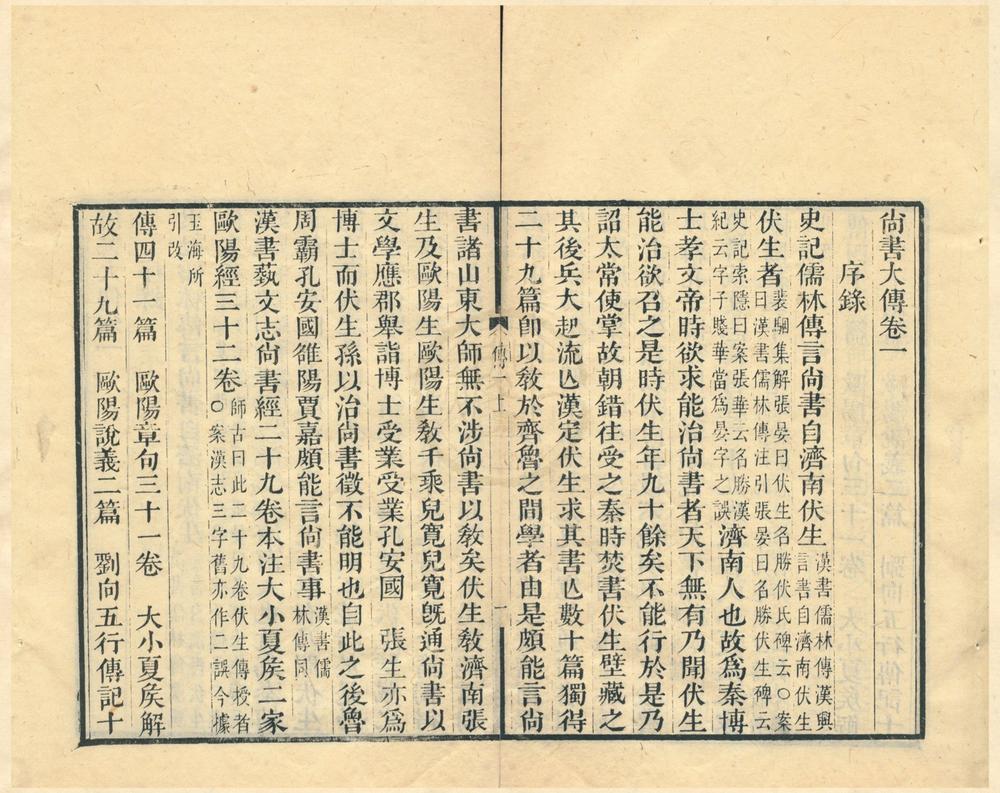 尚書大傳卷一
序錄
史記儒林傳言尚書自濟南伏生漢書儒林傳漢興言書自濟南伏生
伏生者裴駰集解張晏曰伏生名勝伏氏碑云〇案曰漢書儒林傳注引張晏曰名勝伏生碑云
史記索隱曰案張華云名勝漢紀云字子賤華當爲晏字之誤濟南人也故爲秦博
士孝文帝時欲求能治尚書者天下無有乃聞伏生
能治欲召之是時伏生年九十餘矣不能行於是乃
詔太常使掌故朝錯往受之秦時焚書伏生壁藏之
其後兵大起流亾漢定伏生求其書亾數十篇獨得
二十九篇卽以敎於齊魯之閒學者由是頗能言尚
傳一上
一
書諸山東大師無不涉尚書以敎矣伏生敎濟南張
生及歐陽生歐陽生敎千乘兒寬兒寬旣通尚書以
文學應郡舉詣博士受業受業孔安國 張生亦爲
博士而伏生孫以治尚書徵不能明也自此之後魯
周霸孔安國雒陽賈嘉頗能言尚書事漢書儒林傳同
漢書藝文志尚書經二十九卷本注大小夏矦二家
歐陽經三十二卷師古曰此二十九卷伏生傳授者〇案漢志三字舊亦作二誤今據
玉海所引改
傳四十一篇 歐陽章句三十一卷 大小夏矦解
故二十九篇 歐陽說義二篇 劉向五行傳記十